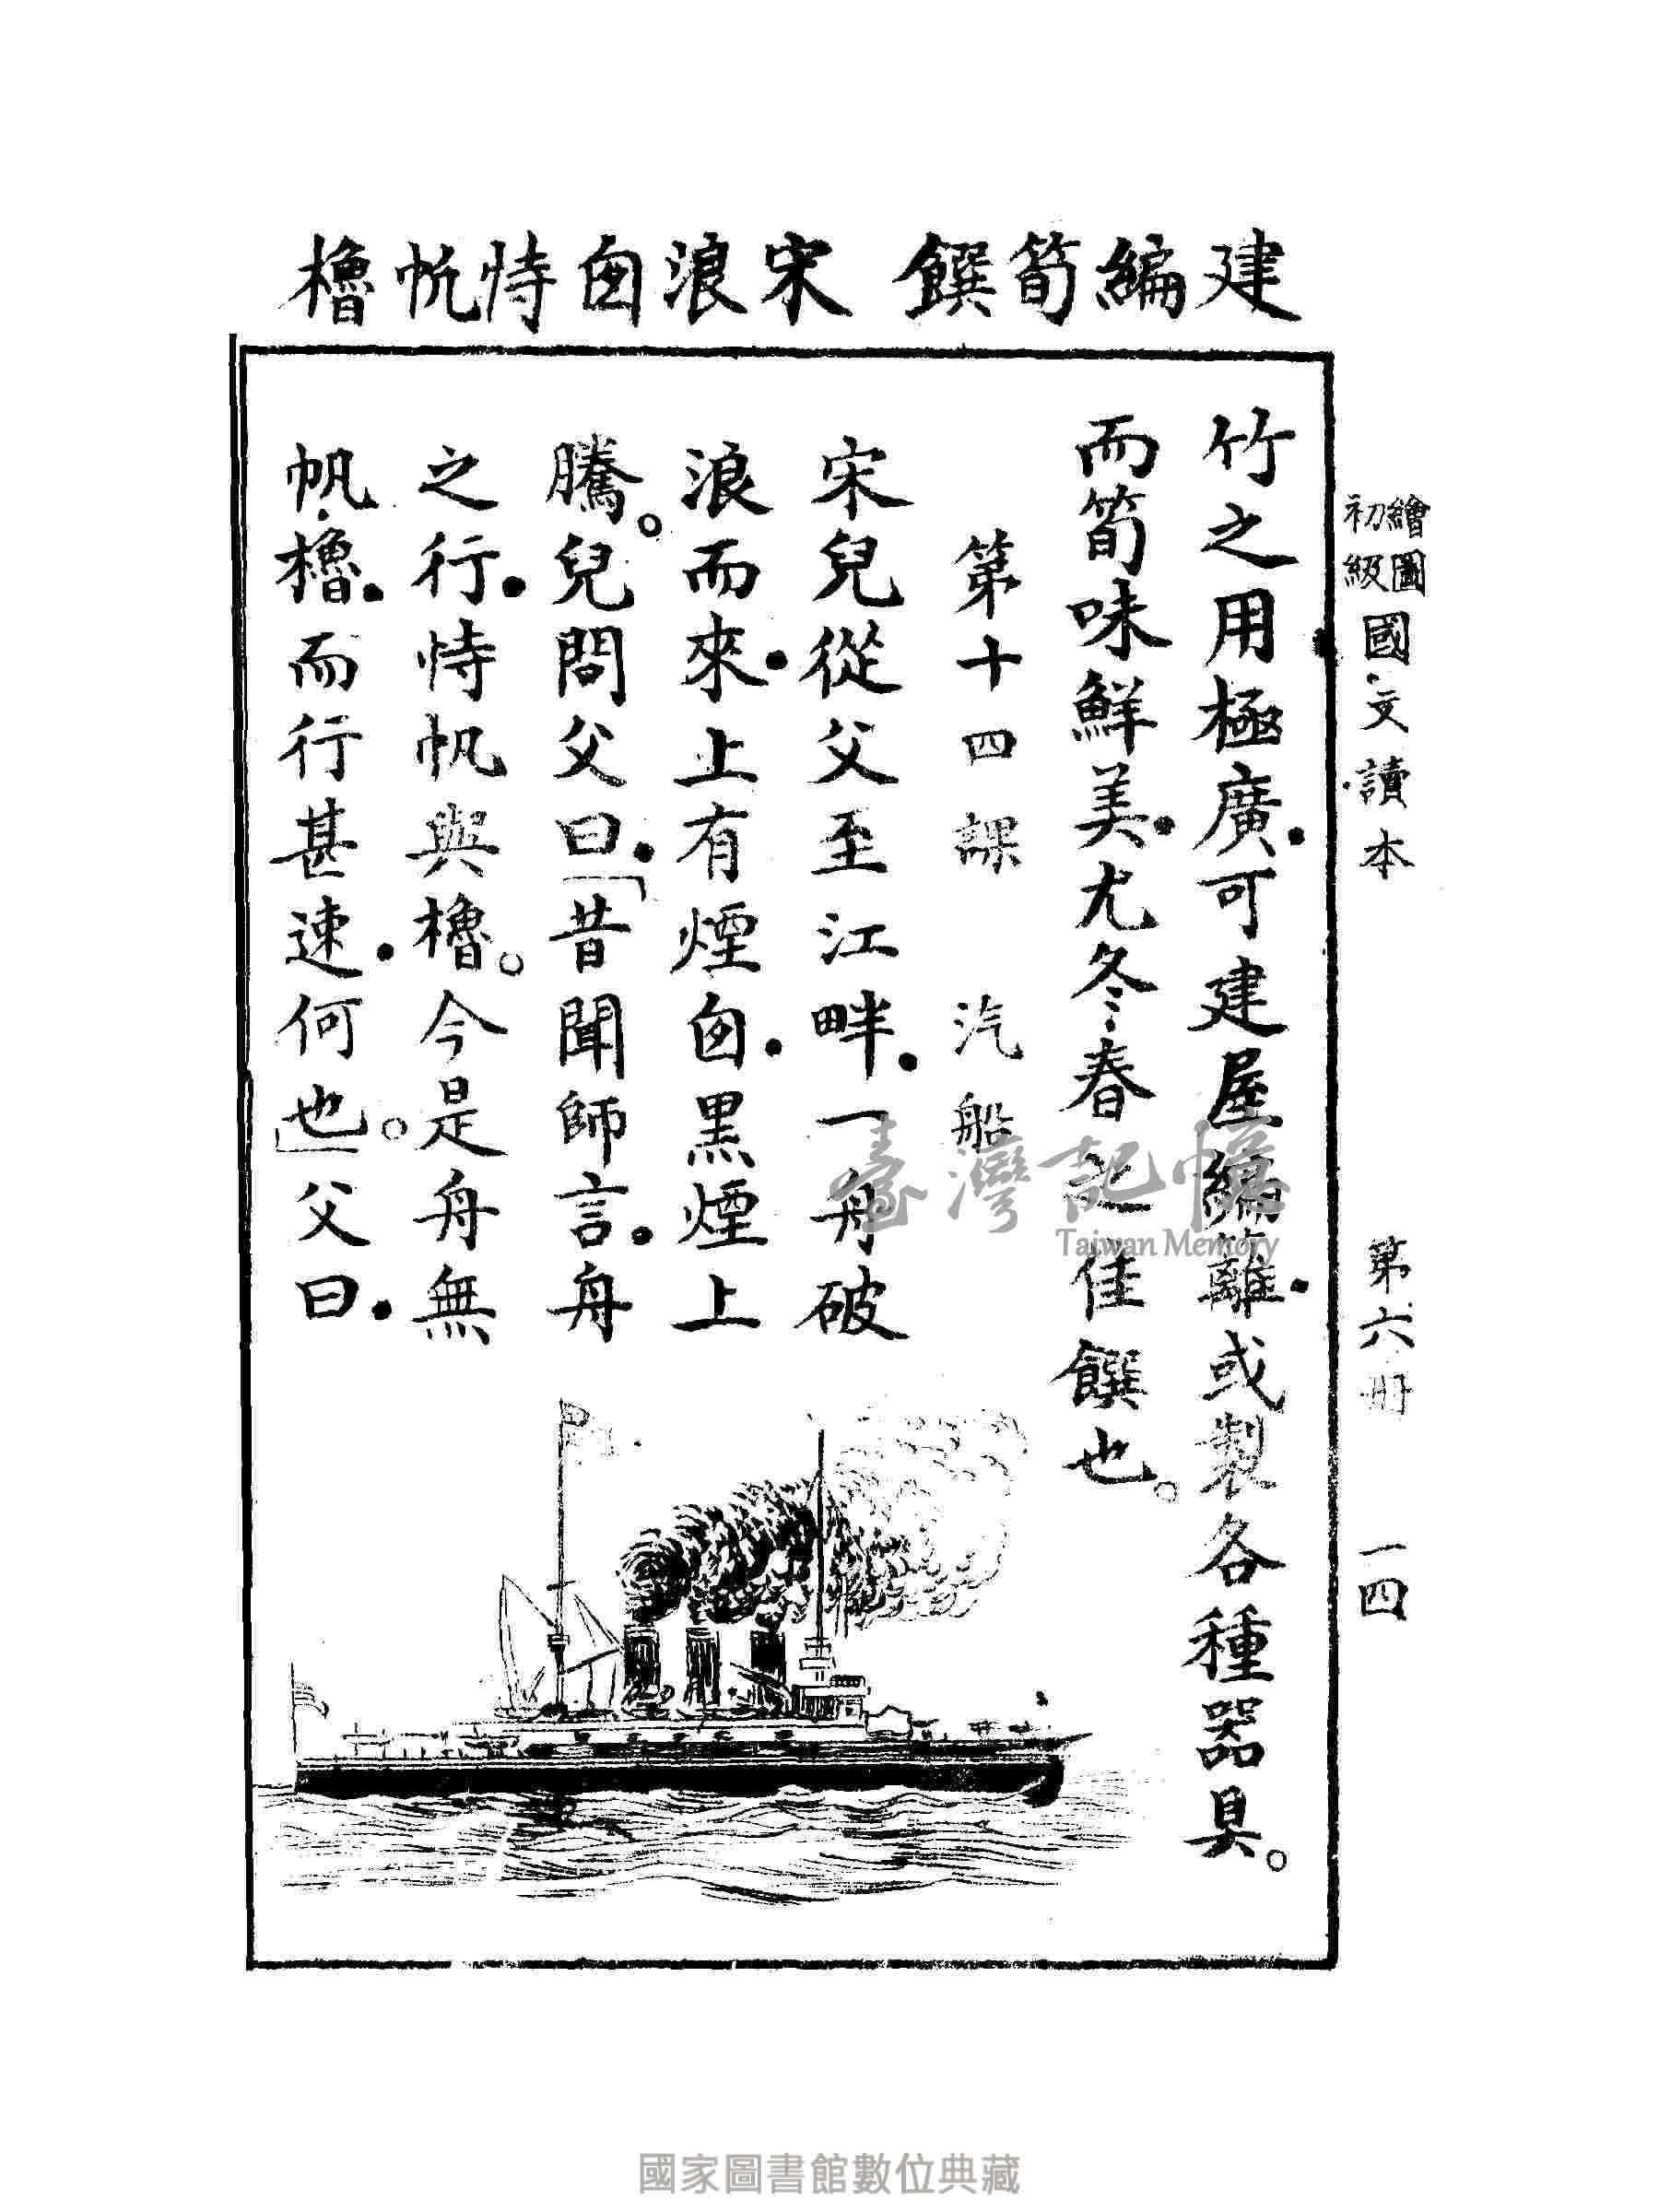 建編筍饌 宋浪囱恃帆櫓
繪圖
初級
國文讀本 第六册 一四
竹之用極廣。可建屋編籬。或製各種器具。
而筍味鮮美。尤冬春之佳饌也。
第十四課 汽船
宋兒從父至江畔。一舟破
浪而來。上有煙囱。黑煙上
騰。兒問父曰。「昔聞師言。舟
之行。恃帆與櫓。今是舟無
帆櫓。而行甚速。何也。」父曰。
臺灣記憶
Taiwan Memory
國家圖書館數位典藏